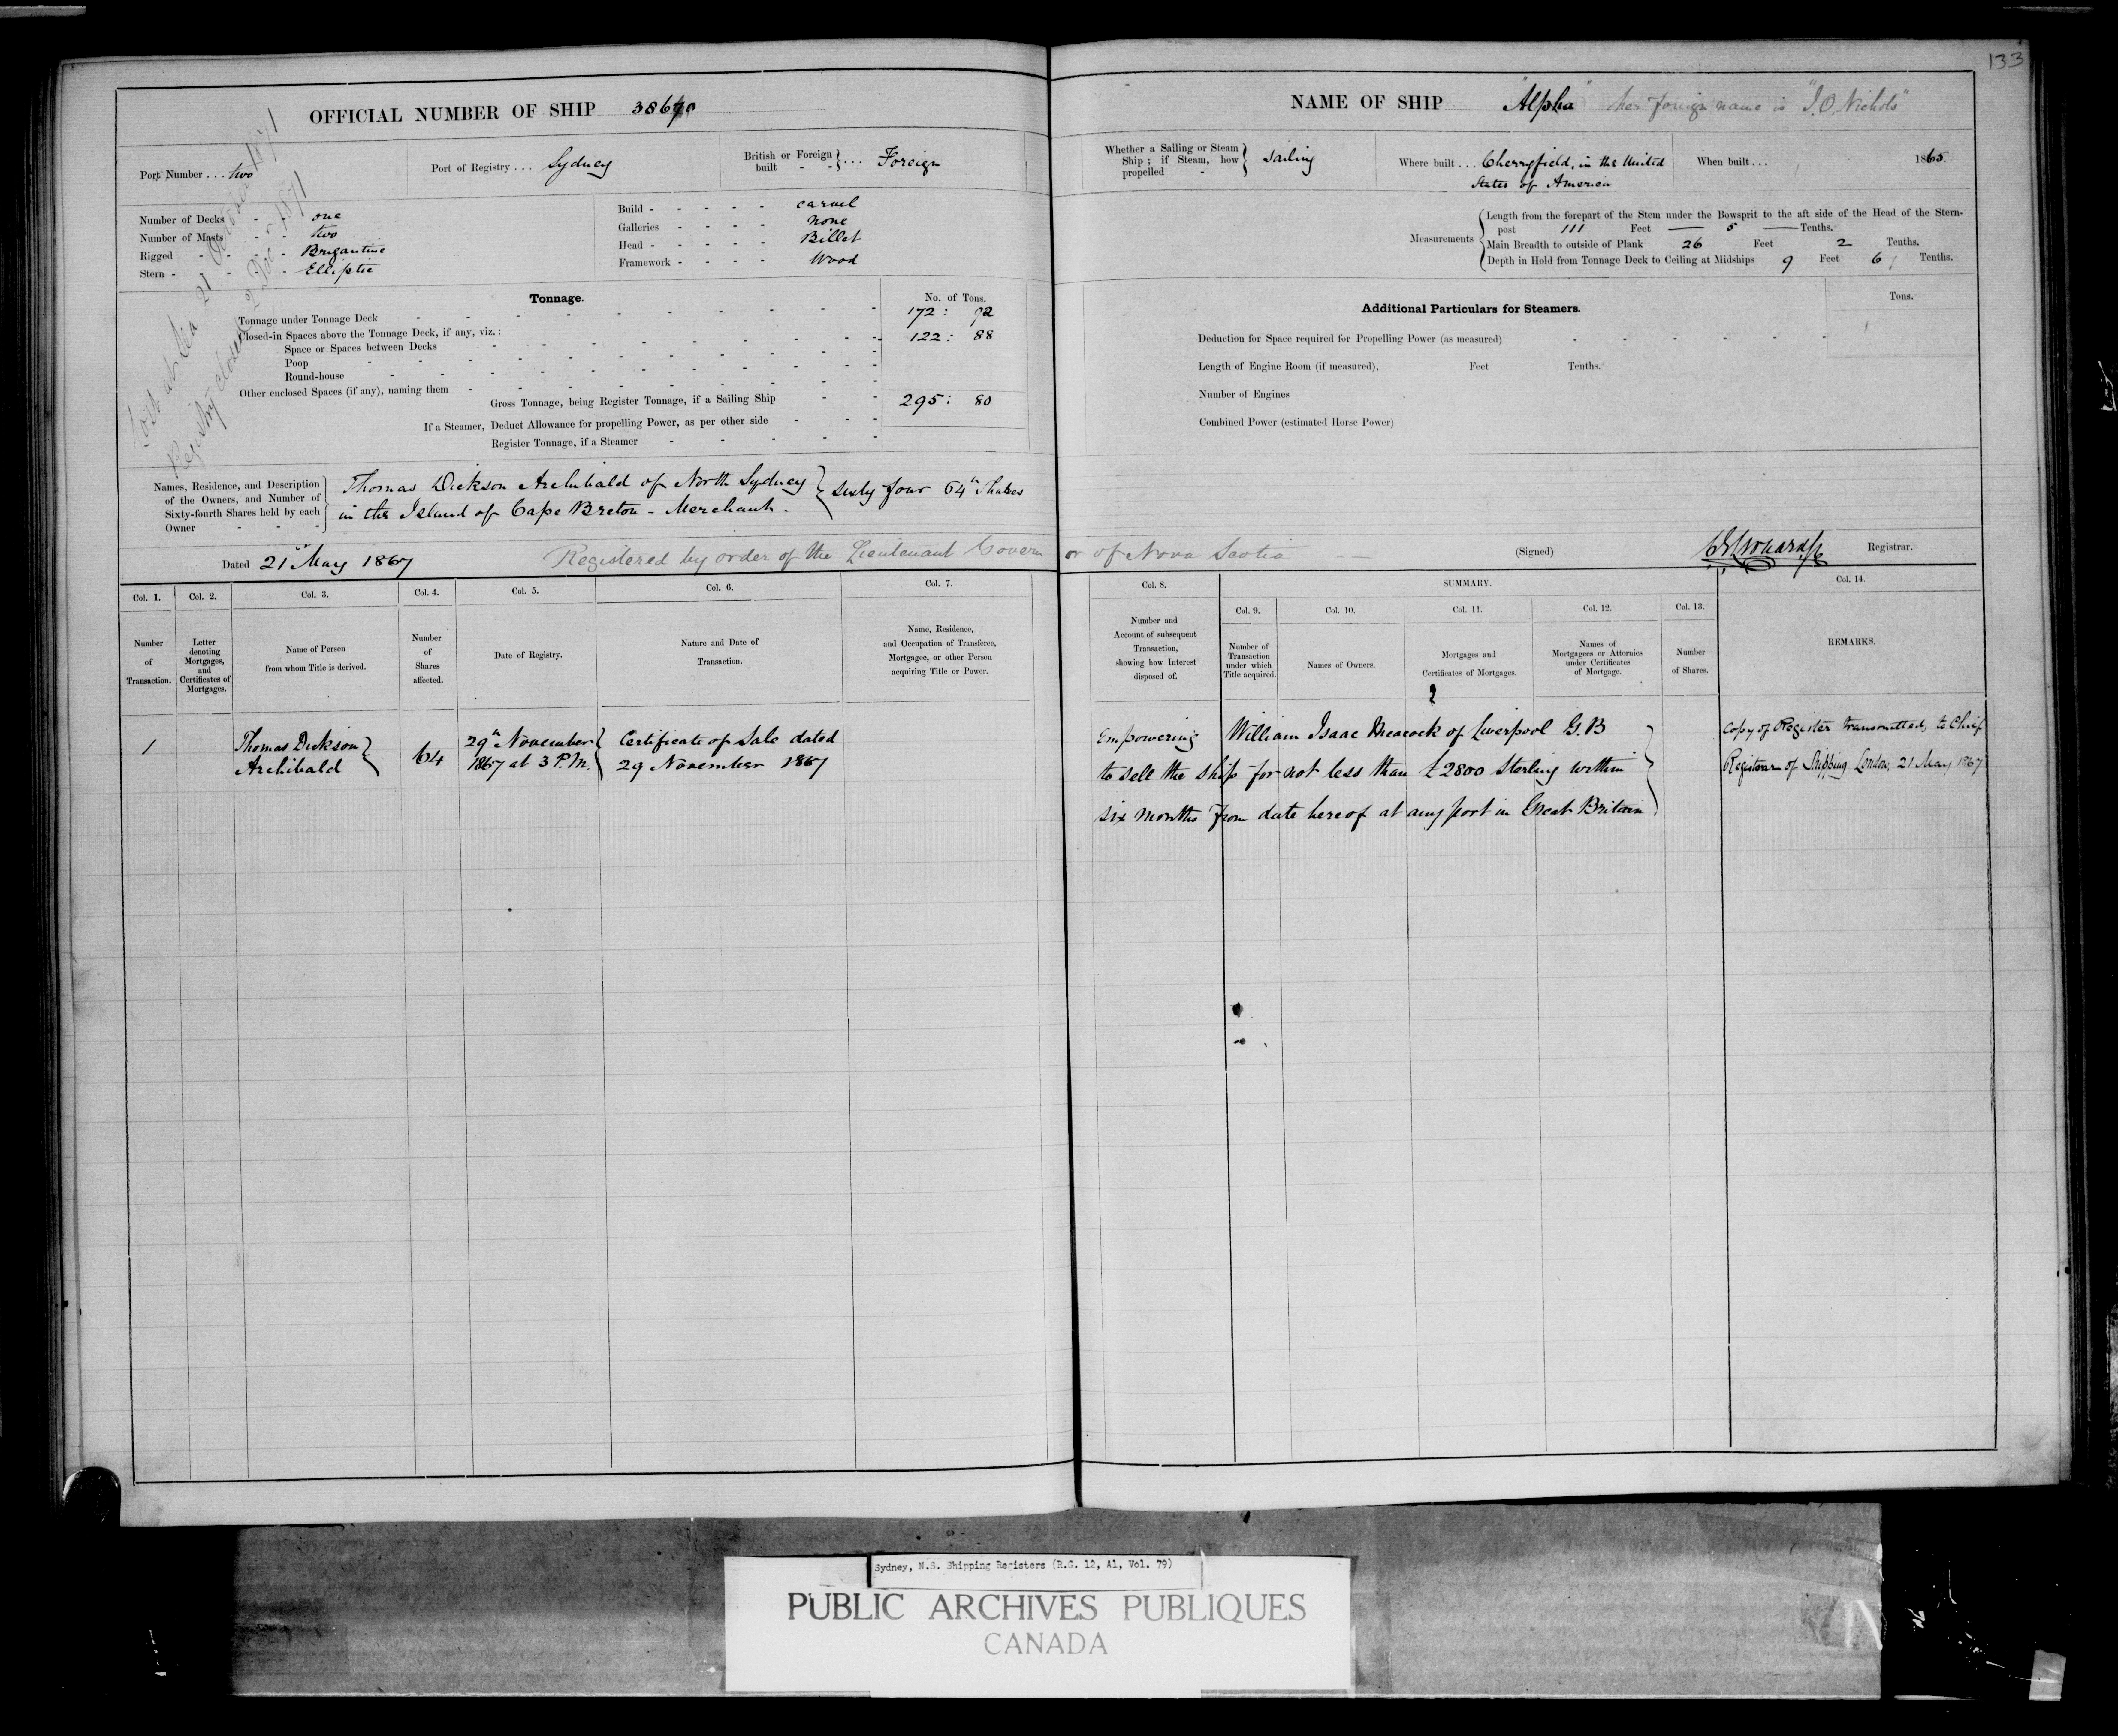 133
OFFICIAL NUMBER OF SHIP 38670
NAME OF SHIP "Alpha" her foreign name is "J.O. Nichols"
Port Number . . . two
Port of Registry . . . Sydney
British or Foreign built . . . Foreign
Whether a Sailing or Steam Ship ; if Steam, how propelled - Sailing
Where built . . . Cherryfield, in the United
States of America
When built . . . 1865.
Number of Decks - - one
Number of Masts - - two
Rigged - - - Brigantine
Stern - - - - Elliptic
Build - - - - - carvel
Galleries - - - - none
Head - - - - - Billet
Framework - - - - Wood
Measurements
Length from the forepart of the Stem under the Bowsprit to the aft side of the Head of the Stern-
post 111 Feet 5 Tenths.
Main Breadth to outside of Plank 26 Feet 2 Tenths.
Depth in Hold from Tonnage Deck to Ceiling at Midships 9 Feet 6 Tenths.
Lost at Sea 21 October 1871
Registry closed 2 Dec 1871
Tonnage.
No. of Tons.
Tonnage under Tonnage Deck 172 : 92
Closed-in Spaces above the Tonnage Deck, if any, viz. : 122 : 88
Space or Spaces between Decks
Poop
Round-house
Other enclosed Spaces (if any), naming them
Gross Tonnage, being Register Tonnage, if a Sailing Ship 295 : 80
If a Steamer, Deduct Allowance for propelling Power, as per other side
Register Tonnage, if a Steamer
Additional Particulars for Steamers.
Tons.
Deduction for Space required for Propelling Power (as measured)
Length of Engine Room (if measured), Feet Tenths.
Number of Engines
Combined Power (estimated Horse Power)
Names, Residence, and Description
of the Owners, and Number of
Sixty-fourth Shares held by each
Owner
Thomas Dickson Archibald of North Sydney
in the Island of Cape Breton - Merchant.
Sixty four 64th Shares
Dated 21st May 1867 Registered by order of the Lieutenant Governor of Nova Scotia
(Signed) Registrar.
Col. 1. Col. 2. Col. 3. Col. 4. Col. 5. Col. 6. Col. 7. Col. 8. SUMMARY. Col. 14.
Col. 9. Col. 10. Col. 11. Col. 12. Col. 13.
Number of Transaction.
Letter denoting Mortgages, and Certificates of Mortgages.
Name of Person from whom Title is derived.
Number of Shares affected.
Date of Registry.
Nature and Date of Transaction.
Name, Residence, and Occupation of Transferee, Mortgagee, or other Person acquiring Title or Power.
Number and Account of subsequent Transaction, showing how Interest disposed of.
Number of Transaction under which Title acquired.
Names of Owners.
Mortgages and Certificates of Mortgages.
Names of Mortgagees or Attornies under Certificates of Mortgage.
Number of Shares.
REMARKS.
1
Thomas Dickson
Archibald
64
29th November
1867 at 3 P.M.
Certificate of Sale dated
29 November 1867
Empowering William Isaac Meacock of Liverpool G.B
to sell the ship for not less than £2800 Sterling within
six months from date hereof at any port in Great Britain
Copy of Register transmitted to Chief
Registrar of Shipping London, 21 May 1867
Sydney, N.S. Shipping Registers (R.G. 12, A1, Vol. 79)
PUBLIC ARCHIVES PUBLIQUES
CANADA